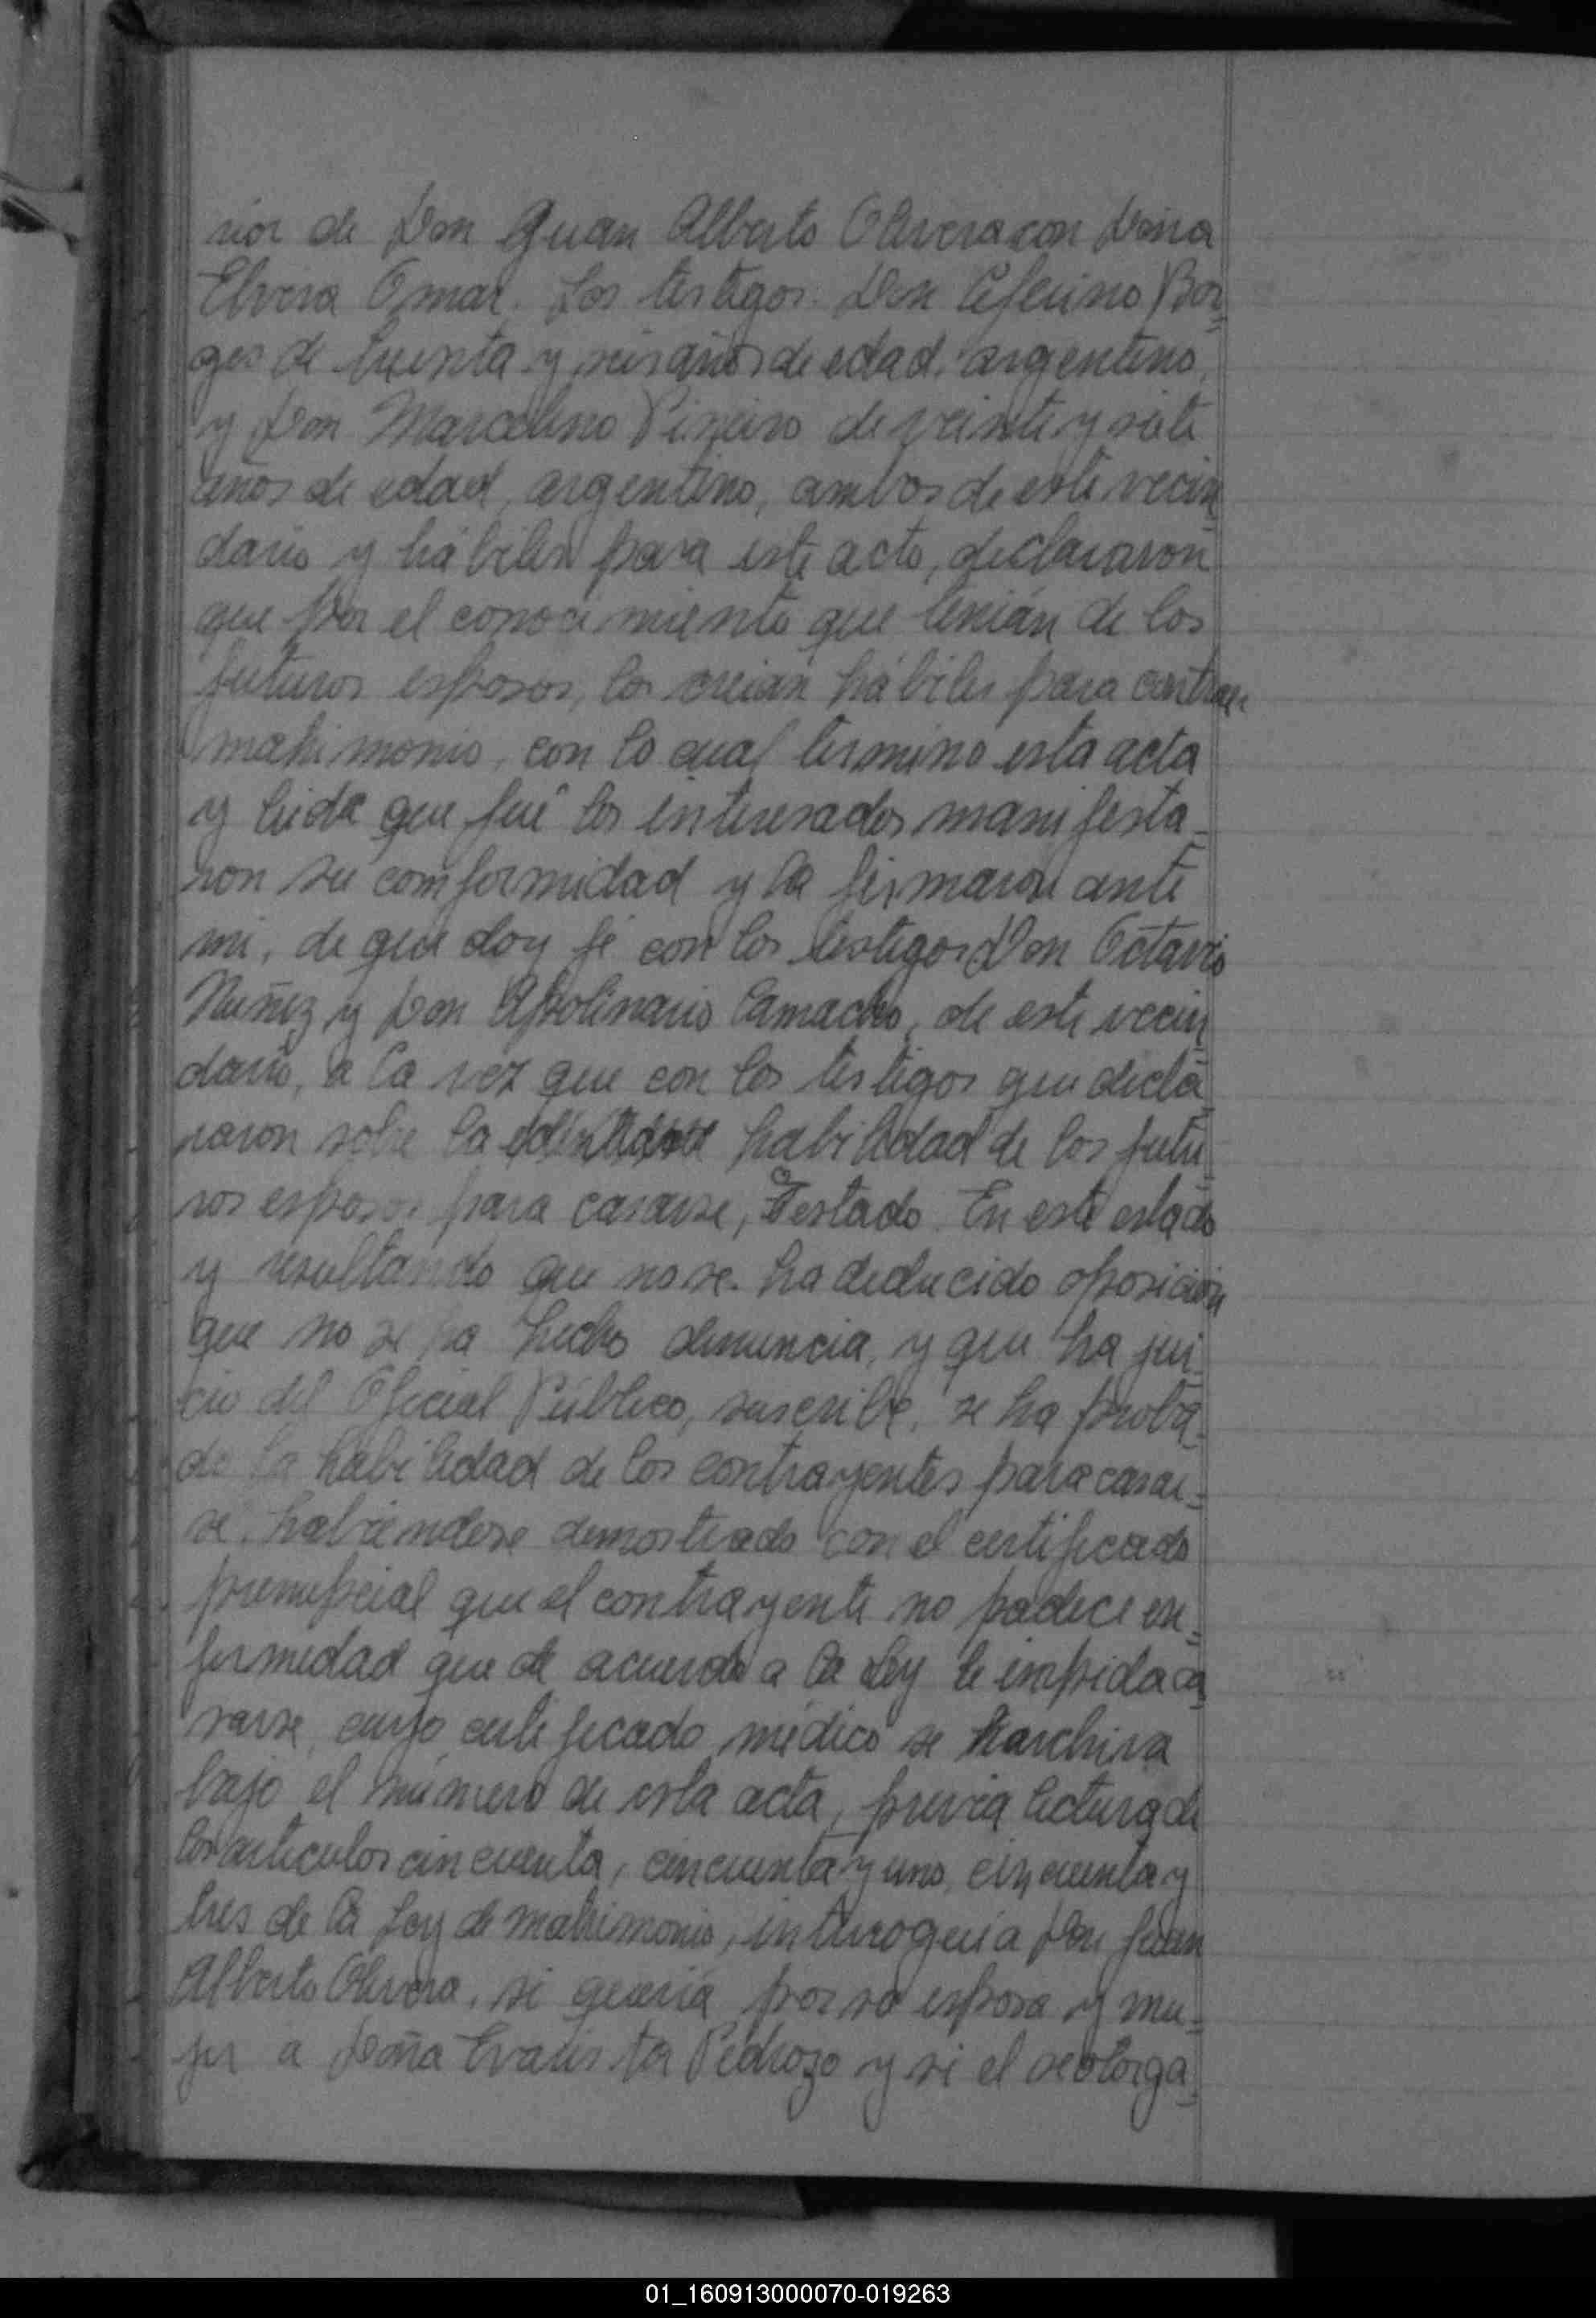 rior de Don Juan Alberto Olivera con Doña
Elvira Omar. Los testigos: Don Ceferino Bor=
ges de treinta y seis años de edad, argentino,
y Don Marcelino Piñeiro de veinte y siete
años de edad, argentino, ambos de este vecin=
dario y hábiles para este acto, declararon
que por el conocimiento que tenián de los
futuros esposos, los creian hábiles para contraer
matrimonio, con lo cual terminó esta acta
y leida que fué los interesados manifesta=
ron su comformidad y la firmaron ante
mi, de que doy fé con los testigos Don Octavio
Nuñez y Don Apolinario Camacho, de este vecin
dario, a la vez que con los testigos que decla=
raron sobre la habilidad de los futu=
ros esposos para casarse, Testado. En este estado
y resultando que no se ha deducido oposición
que no se ha hecho denuncia, y que ha jui=
cio del Oficial Público, suscribe, se ha proba=
do la habilidad de los contrayentes para casar=
se, habiendose demostrado con el certificado
prenupcial que el contrayente no padece en=
fermedad que de acuerdo a la Ley le impida ca
sarse, cuyo certificado médico se harchiva
bajo el número de esta acta, previa lectura de
los articulos cincuenta, cincuenta y uno, cincuenta y
tres de la Ley de matrimonio, interrogué a Don Juan
Alberto Olivera, si queria por su esposa y mu=
jer a Doña Evarista Pedrozo y si el se otorga=
01_160913000070-019263